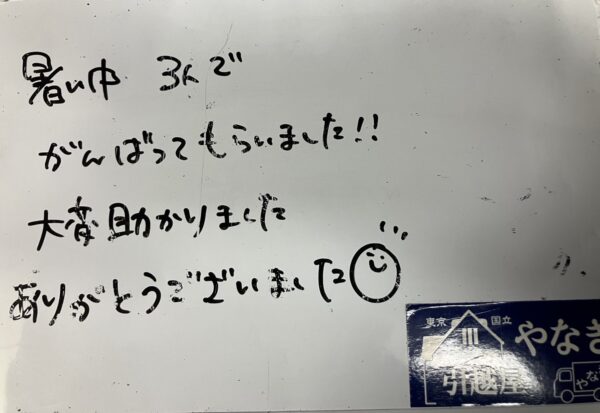 暑い中 3人で
がんばってもらいました!!
大変助かりました
ありがとうございました
東京 国立
やなぎ
引越屋
やな